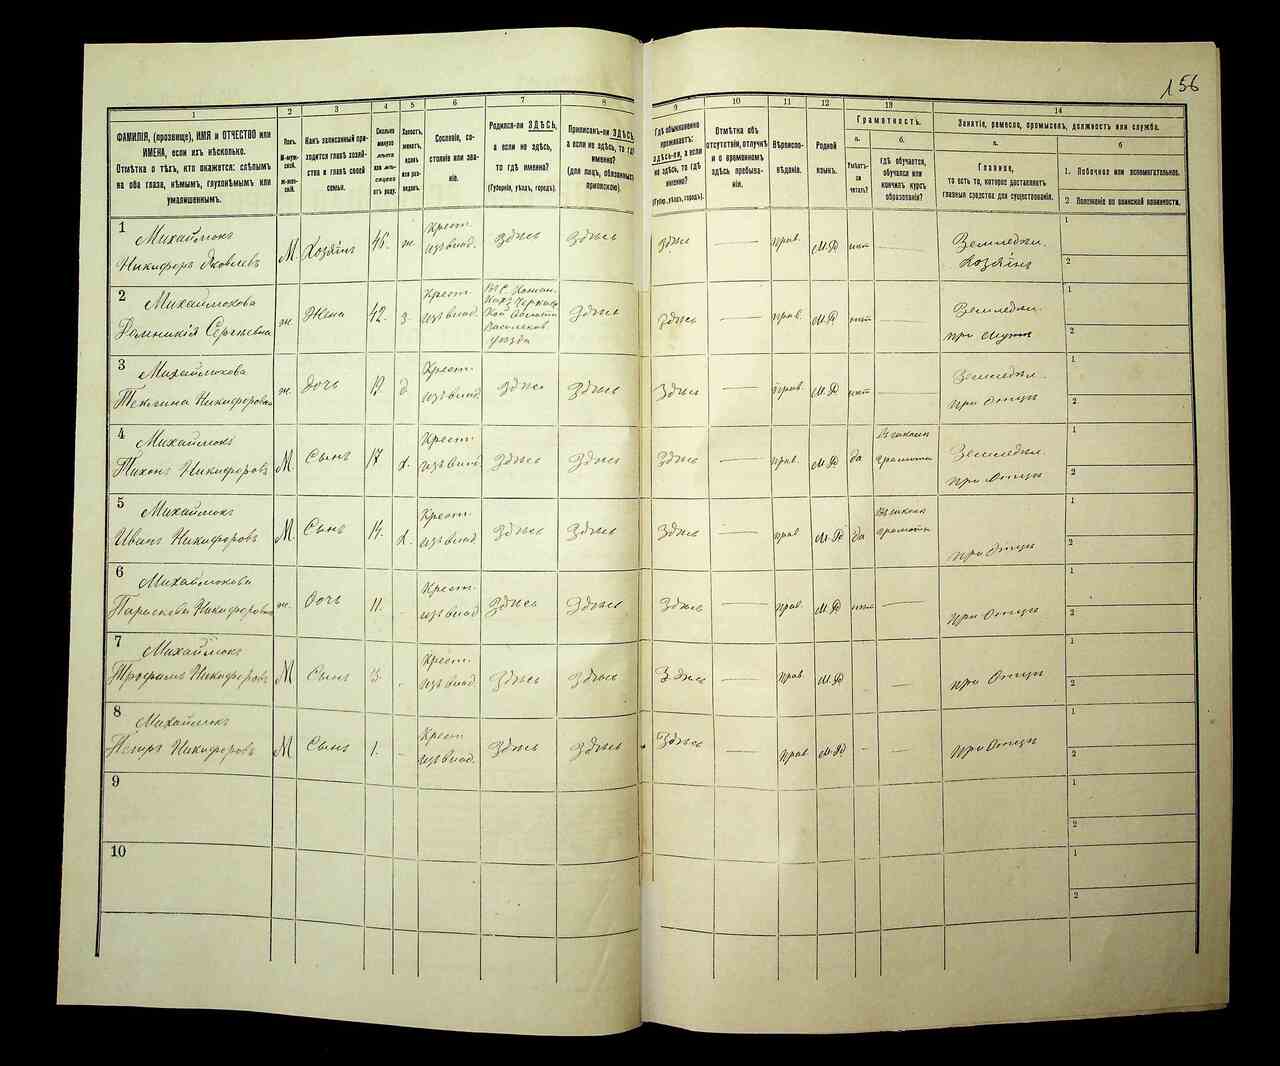 156
1
2
3
4
5
6
7
8
9
10
11
12
13
14
ФАМИЛІЯ, (прозвище), ИМЯ и ОТЧЕСТВО или
ИМЕНА, если ихъ нѣсколько.
Отмѣтка о тѣхъ, кто окажется: слѣпымъ
на оба глаза, нѣмымъ, глухонѣмымъ или
умалишеннымъ.
Полъ.
М-муж-
ской.
Ж-жен-
скій.
Какъ записанный при-
ходится главѣ хозяй-
ства и главѣ своей
семьи.
Сколько
минуло
лѣтъ
или мѣ-
сяцевъ
отъ роду.
Холостъ,
женатъ,
вдовъ
или раз-
веденъ.
Сословіе, со-
стояніе или зва-
ніе.
Родился-ли ЗДѢСЬ,
а если не здѣсь,
то гдѣ именно?
(Губернія, уѣздъ, городъ).
Приписанъ-ли ЗДѢСЬ,
а если не здѣсь, то гдѣ
именно?
(для лицъ, обязанныхъ
припискою).
Гдѣ обыкновенно
проживаетъ:
ЗДѢСЬ-ли, а если
не здѣсь, то гдѣ
именно?
(Губер., уѣздъ, городъ).
Отмѣтка объ
отсутствіи, отлучкѣ
и о временномъ
здѣсь пребыва-
ніи.
Вѣроиспо-
вѣданіе.
Родной
языкъ.
Грамотность.
а.
б.
Умѣетъ-
ли
читать?
гдѣ обучается,
обучался или
кончилъ курсъ
образованія?
Занятіе, ремесло, промыселъ, должность или служба.
а.
б
Главное,
то есть то, которое доставляетъ
главныя средства для существованія.
1. Побочное или вспомогательное.
2 Положеніе по воинской повинности.
1
Михаймюкъ
Никифоръ Яковлевъ
М. Хозяинъ 46. ж.
Крест.
изъ влад.
Здѣсь Здѣсь Здѣсь — прав. М.Р нѣт —
Земледѣл.
Хозяинъ
1
2
2
Михаймюкова
Домникія Сергѣевна
ж. Жена 42. з.
Крест.
изъ влад.
уѣзда
Здѣсь Здѣсь — прав. М.Р нѣт —
Земледѣл.
при мужѣ
1
2
3
Михаймюкова
Никифоровна
ж. Дочь д
Крест.
изъ влад.
Здѣсь Здѣсь Здѣсь — Прав. М.Р нѣт —
Земледѣл.
при Отцѣ
1
2
4
Михаймюкъ
Тихонъ Никифоровъ
М. Сынъ 17 х.
Крест.
изъ влад.
Здѣсь Здѣсь Здѣсь — прав. М.Р да
грамоты
Земледѣл.
при Отцѣ
1
2
5
Михаймюкъ
Иванъ Никифоровъ
М. Сынъ 14. х.
Крест.
изъ влад.
Здѣсь Здѣсь Здѣсь — прав М.Р да
грамоты
при Отцѣ
1
2
6
Михаймюкова
Параскева Никифоровна
ж. Дочь 11. -
Крест.
изъ влад.
Здѣсь Здѣсь Здѣсь — прав. М.Р нѣт —
при Отцѣ
1
2
7
Михаймюкъ
Трофимъ Никифоровъ
М Сынъ .
Крест.
изъ влад.
Здѣсь Здѣсь Здѣсь — прав. М.Р —
при Отцѣ
1
2
8
Михаймюкъ
Петръ Никифоровъ
М Сынъ 1. -
Крест
изъ влад.
Здѣсь Здѣсь Здѣсь — прав М.Р. - —
при Отцѣ
1
2
9
1
2
10
1
2